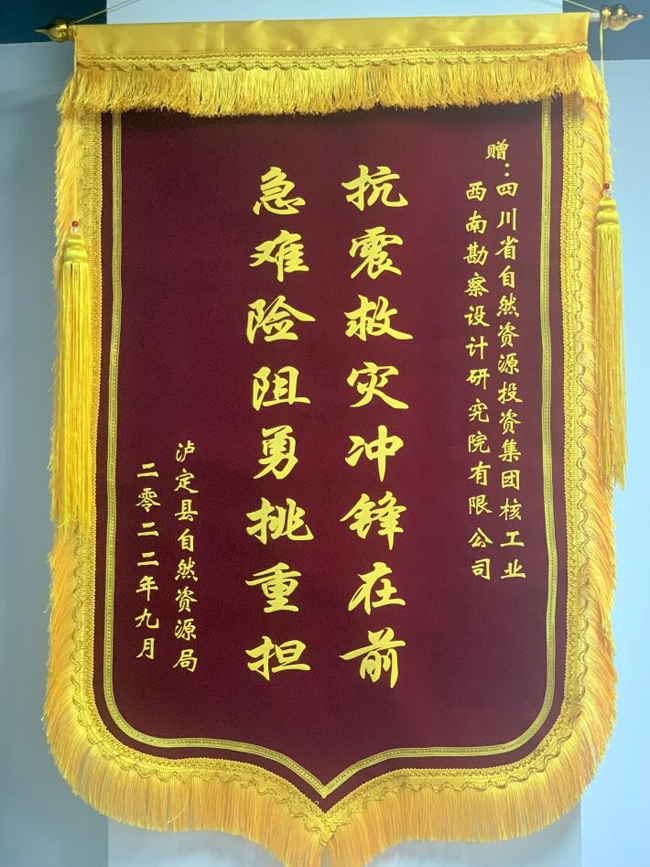 赠:四川省自然资源投资集团核工业
西南勘察设计研究院有限公司
抗震救灾冲锋在前
急难险阻勇挑重担
泸定县自然资源局
二零二二年九月